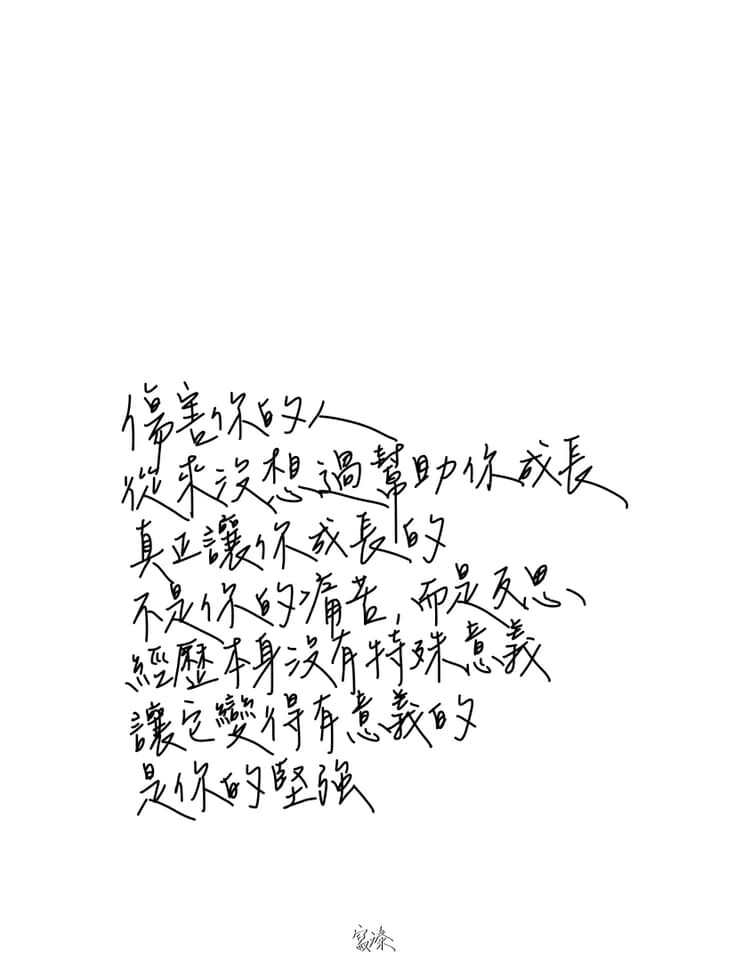 傷害你的人
從來沒想過幫助你成長
真正讓你成長的
不是你的痛苦,而是反思
經歷本身沒有特殊意義
讓它變得有意義的
是你的堅強